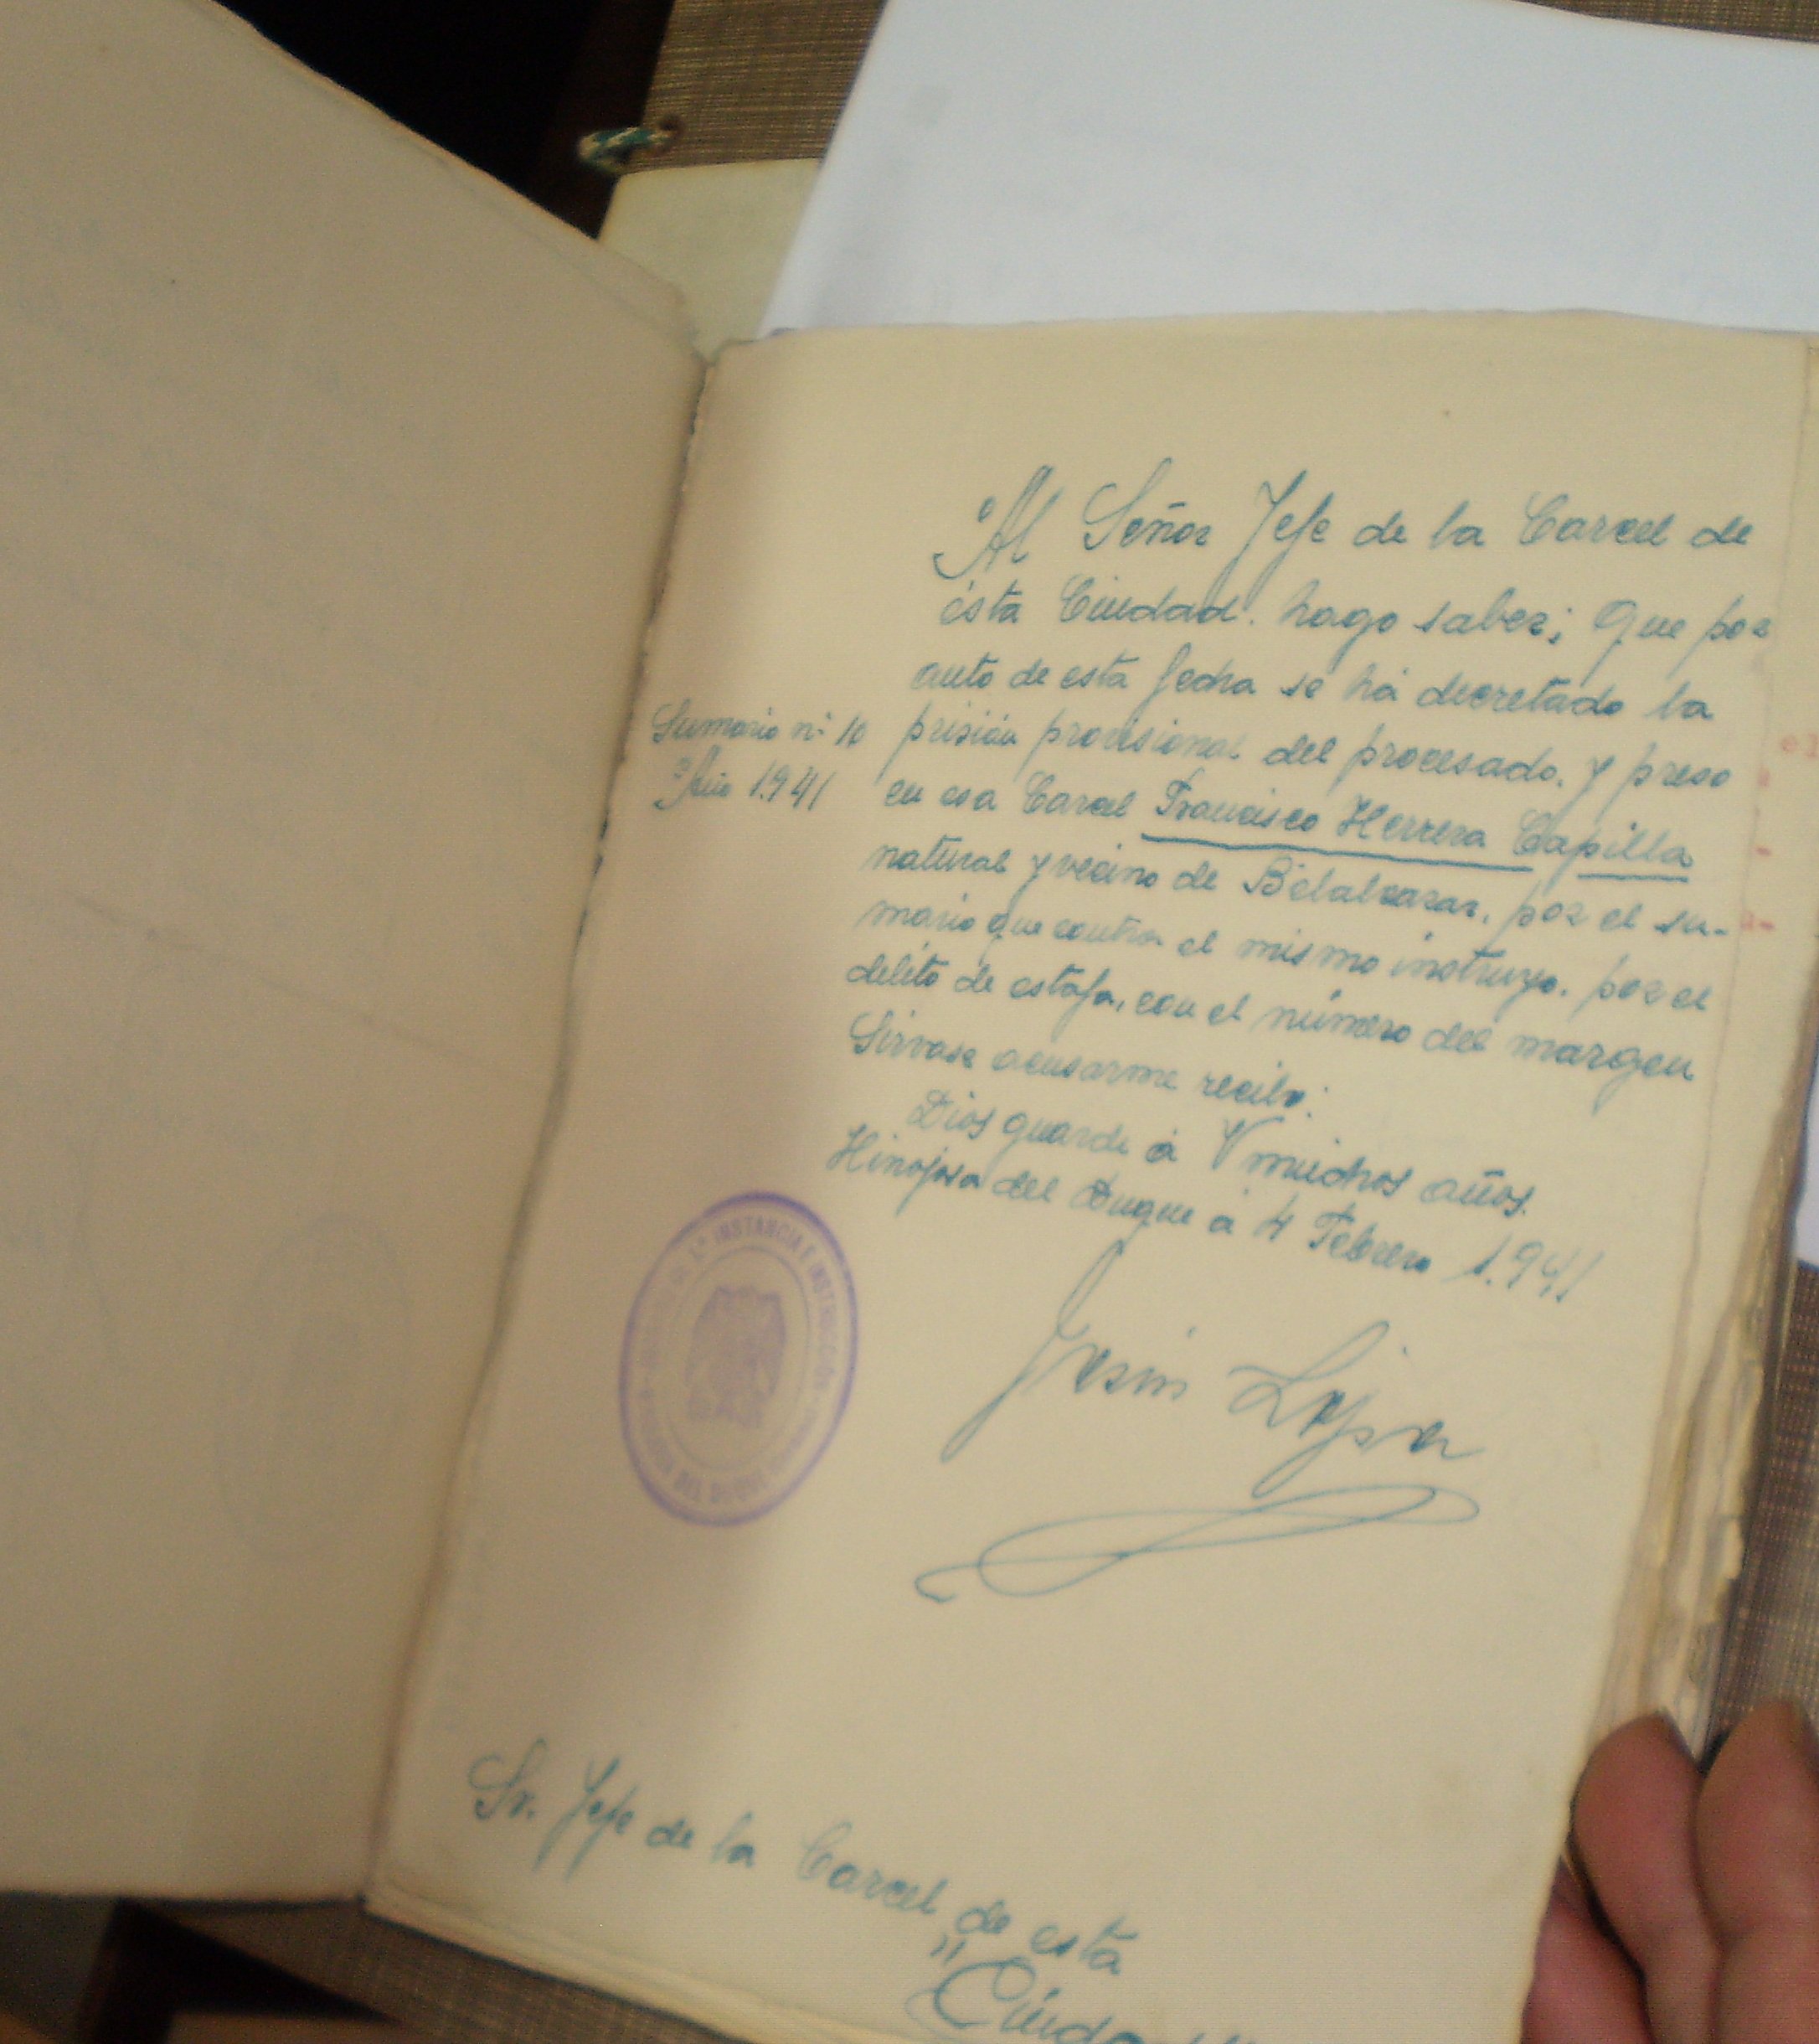 Al Señor Jefe de la Carcel de
ésta Ciudad. hago saber; Que por
auto de esta fecha se há decretado la
Sumario nº 10
Año 1.941
prisión provisional del procesado. y preso
en esa Carcel Francisco Herrera Capilla
natural y vecino de Belalcazar, por el su-
mario que contra el mismo instruyo. por el
delito de estafa, con el número del margen
Sirvase acusarme recibo:
Dios guarde á V muchos años.
Hinojosa del Duque á 4 Febrero 1.941
Jesús
1ª INSTANCIA E INSTRUCCIÓN
HINOJOSA DEL DUQUE
Sr. Jefe de la Carcel de esta
"Ciudad